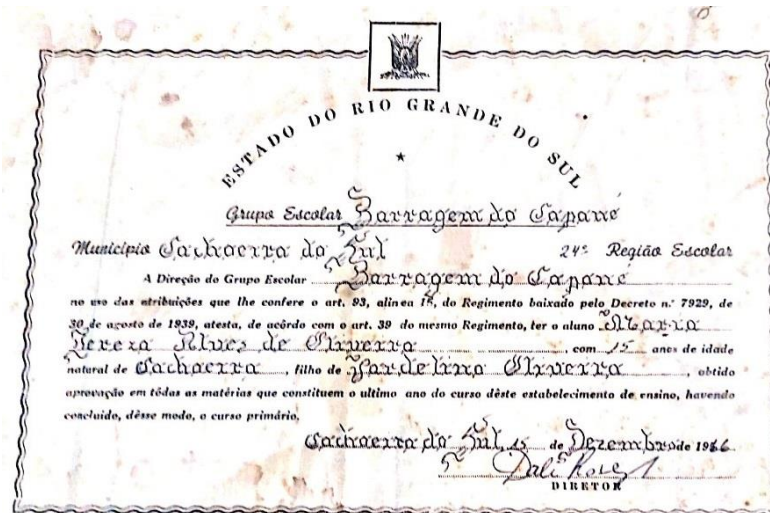 ESTADO DO RIO GRANDE DO SUL
Grupo Escolar Barragem do Capané
Município Cachoeira do Sul 24ª Região Escolar
A Direção do Grupo Escolar Barragem do Capané
no uso das atribuições que lhe confere o art. 93, alinea 1ª, do Regimento baixado pelo Decreto n.º 7929, de
30 de agosto de 1939, atesta, de acôrdo com o art. 39 do mesmo Regimento, ter o aluno Maria
Tereza Alves de Oliveira, com 15 anos de idade
natural de Cachoeira, filho de Jardelino Oliveira, obtido
aprovação em tôdas as matérias que constituem o ultimo ano do curso dêste estabelecimento de ensino, havendo
concluido, dêsse modo, o curso primário.
Cachoeira do Sul, 15 de Dezembro de 1966
DIRETOR